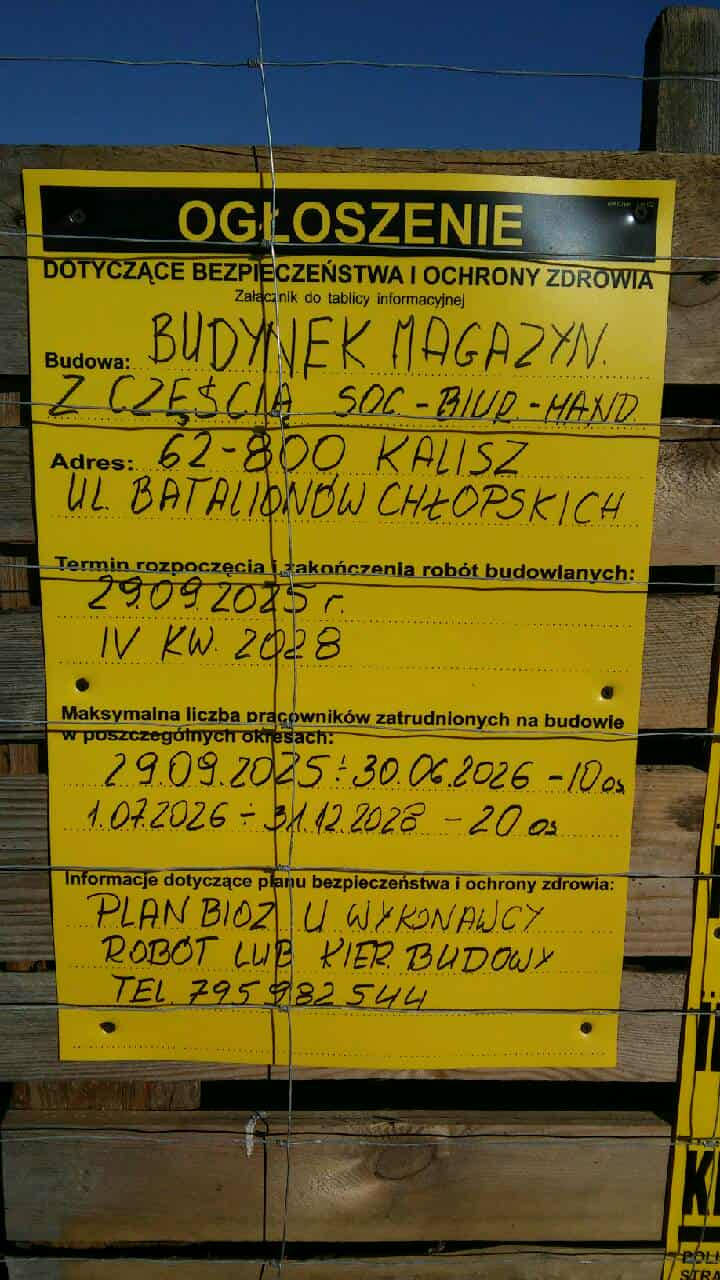 OGŁOSZENIE
DOTYCZĄCE BEZPIECZEŃSTWA I OCHRONY ZDROWIA
Załącznik do tablicy informacyjnej
Budowa: BUDYNEK MAGAZYN.
Z CZĘŚCIĄ SOC.-BIUR.-HAND.
Adres: 62-800 KALISZ
UL. BATALIONÓW CHŁOPSKICH
Termin rozpoczęcia i zakończenia robót budowlanych:
29.09.2025 r.
IV KW. 2028
Maksymalna liczba pracowników zatrudnionych na budowie
w poszczególnych okresach:
29.09.2025 ÷ 30.06.2026 - 10 os
1.07.2026 ÷ 31.12.2028 - 20 os
Informacje dotyczące planu bezpieczeństwa i ochrony zdrowia:
PLAN BIOZ U WYKONAWCY
ROBÓT LUB KIER. BUDOWY
TEL. 795982544